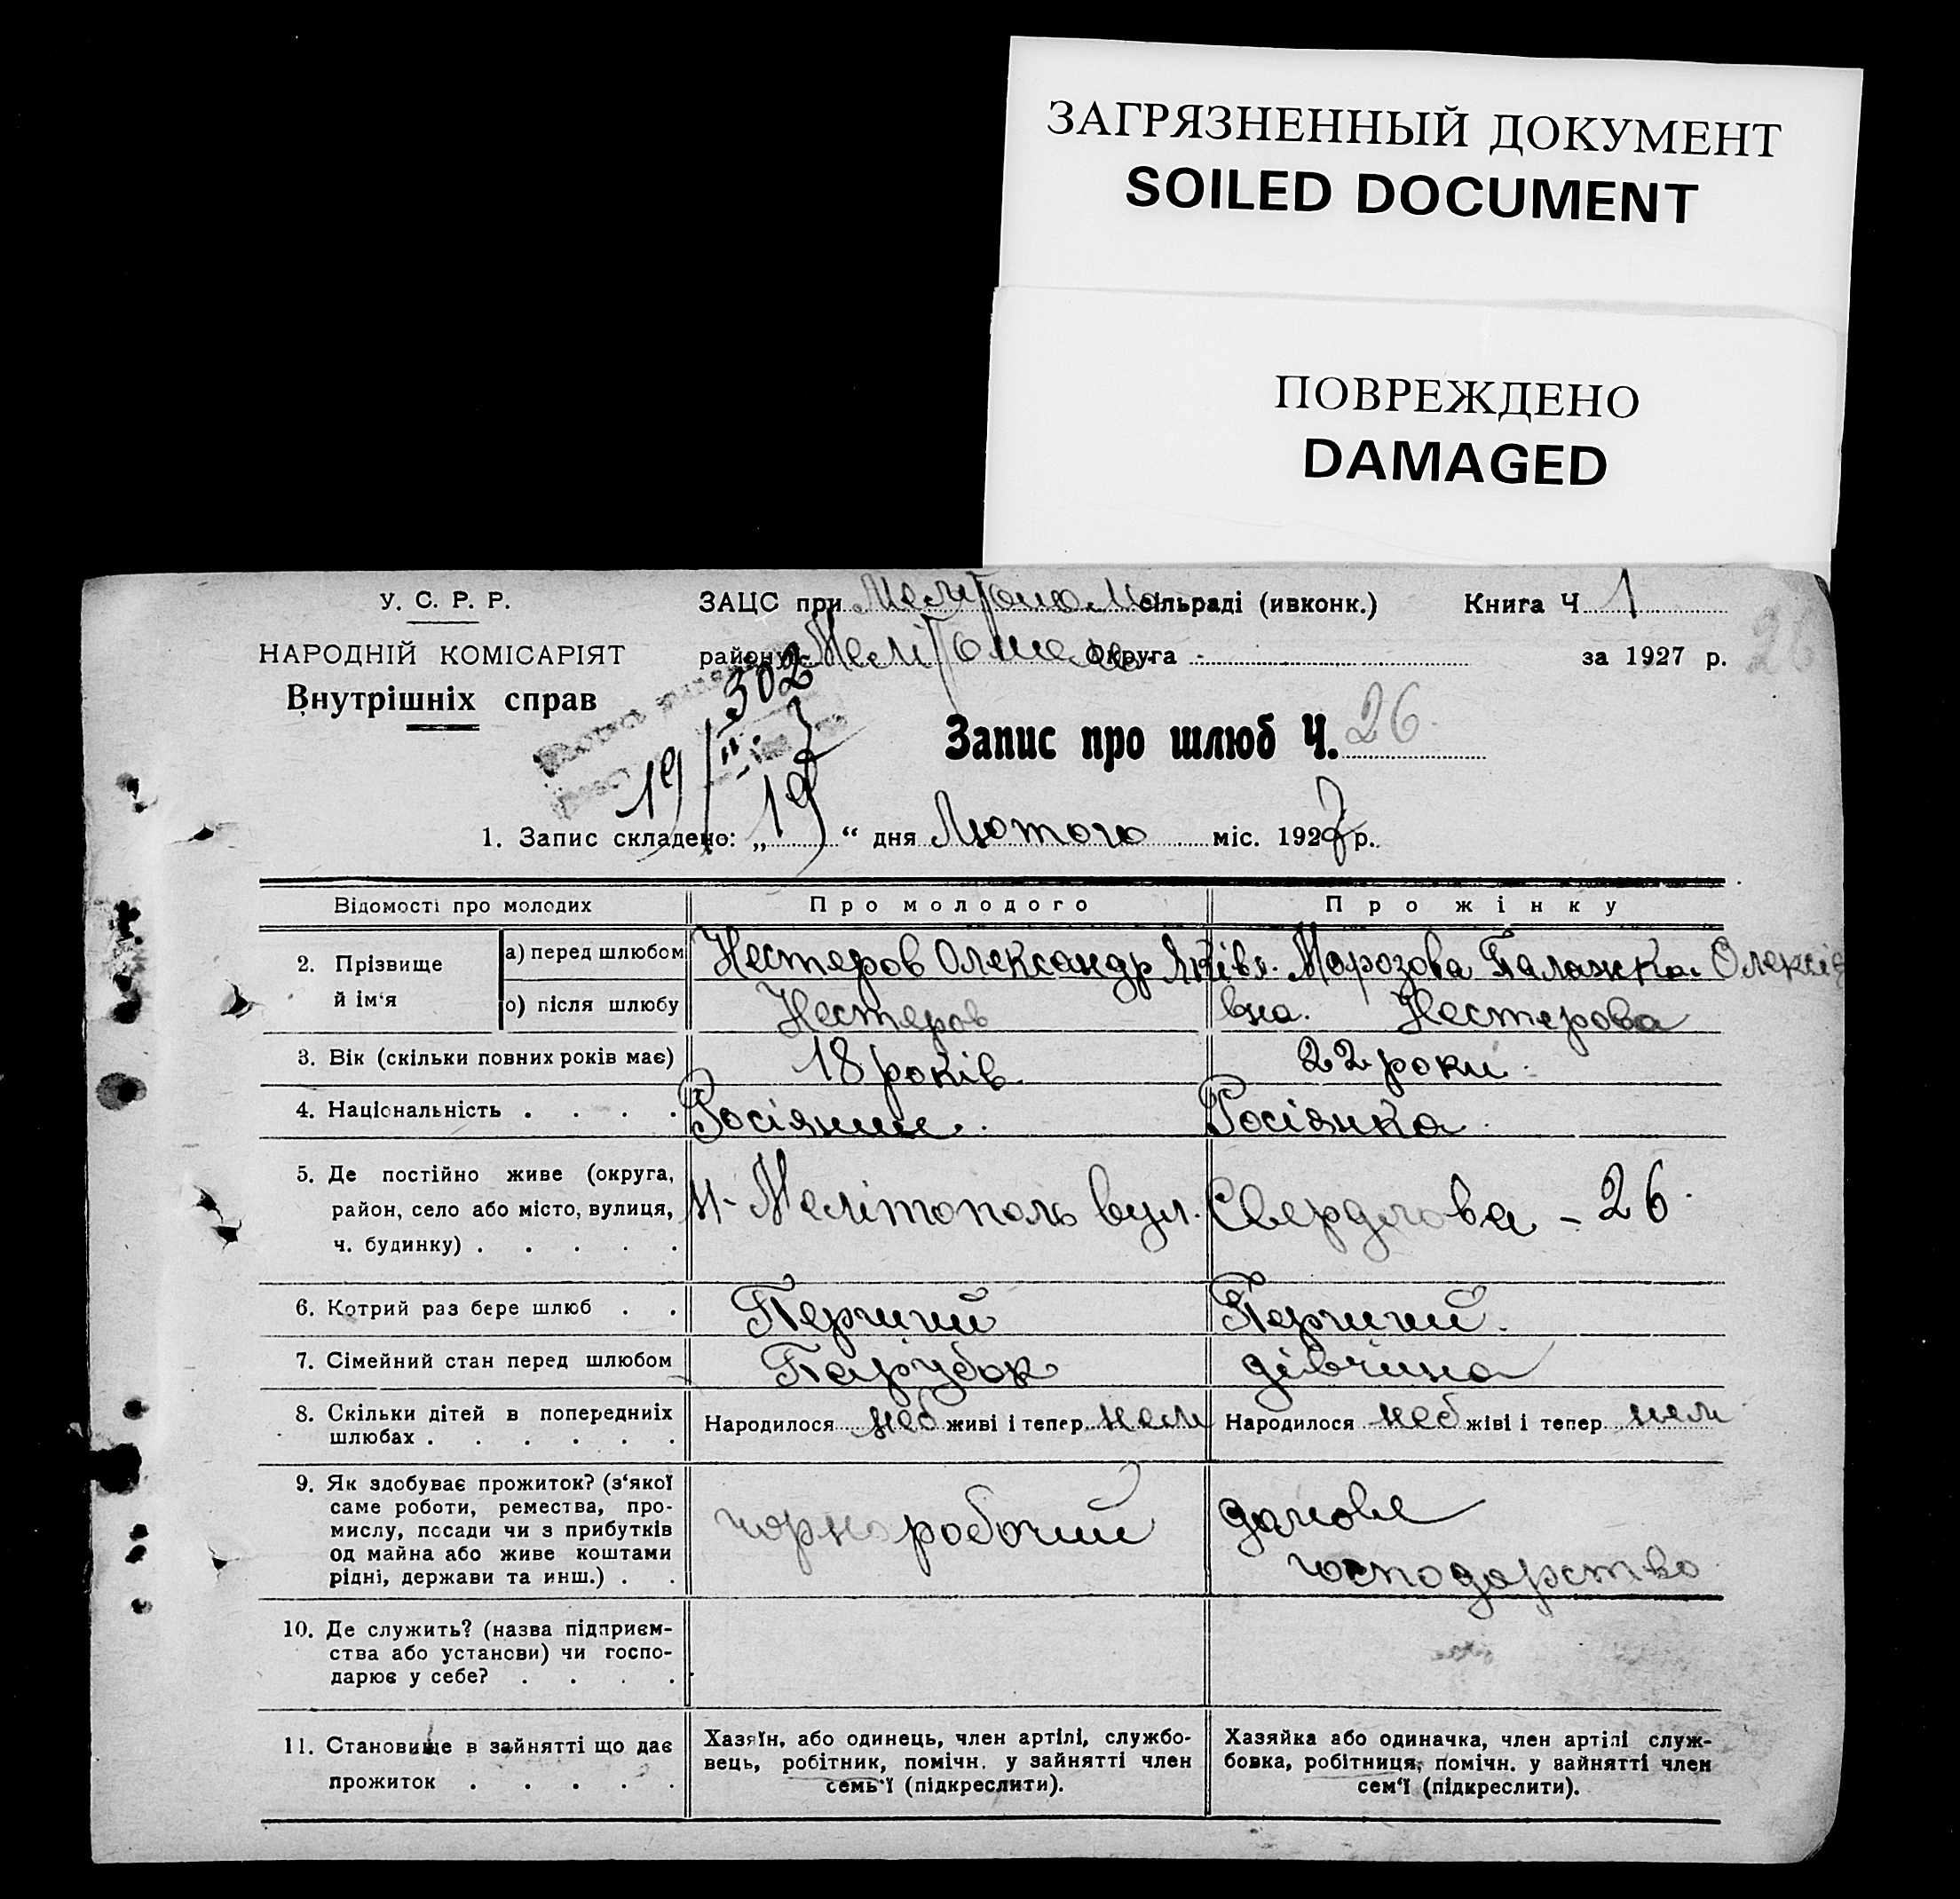 ЗАГРЯЗНЕННЫЙ ДОКУМЕНТ
SOILED DOCUMENT
ПОВРЕЖДЕНО
DAMAGED
У. С. Р. Р.
НАРОДНІЙ КОМІСАРІЯТ
Внутрішніх справ
ЗАЦС при сільраді (ивконк.) Книга Ч 1
району Округа за 1927 р. 26
302
19/II 27
Запис про шлюб Ч. 26
1. Запис складено: „ 19 “ дня Лютого міс. 1927 р.
Відомості про молодих Про молодого Про жінку
2. Прізвище й ім'я а) перед шлюбом Нестеров Олександр Яківв. Морозова Палажка Олексіє
о) після шлюбу Нестеров вна. Нестерова
3. Вік (скільки повних років має) 18 років. 22 роки.
4. Національність . . . . Росіянин. Росіянка.
5. Де постійно живе (округа,
район, село або місто, вулиця,
ч. будинку) . . . . .
М-Мелітополь вул. Свердлова - 26.
6. Котрий раз бере шлюб . . Перший Перший.
7. Сімейний стан перед шлюбом Парубок дівчина
8. Скільки дітей в попередниіх
шлюбах . . . . . .
Народилося живі і тепер нем Народилося жіві і тепер нем
9. Як здобуває прожиток? (з'якої
саме роботи, ремества, про-
мислу, посади чи з прибутків
од майна або живе коштами
рідні, держави та инш.) . .
чорноробочий
домове
господарство
10. Де служить? (назва підприєм-
ства або установи) чи госпо-
дарює у себе? . . . .
11. Становище в зайнятті що дає
прожиток . . . . .
Хазяїн, або одинець, член артілі, службо-
вець, робітник, помічн. у зайнятті член
семь'ї (підкреслити).
Хазяйка або одиначка, член артілі служ-
бовка, робітниця, помічн. у вайнятті член
сем'ї (підкреслити).